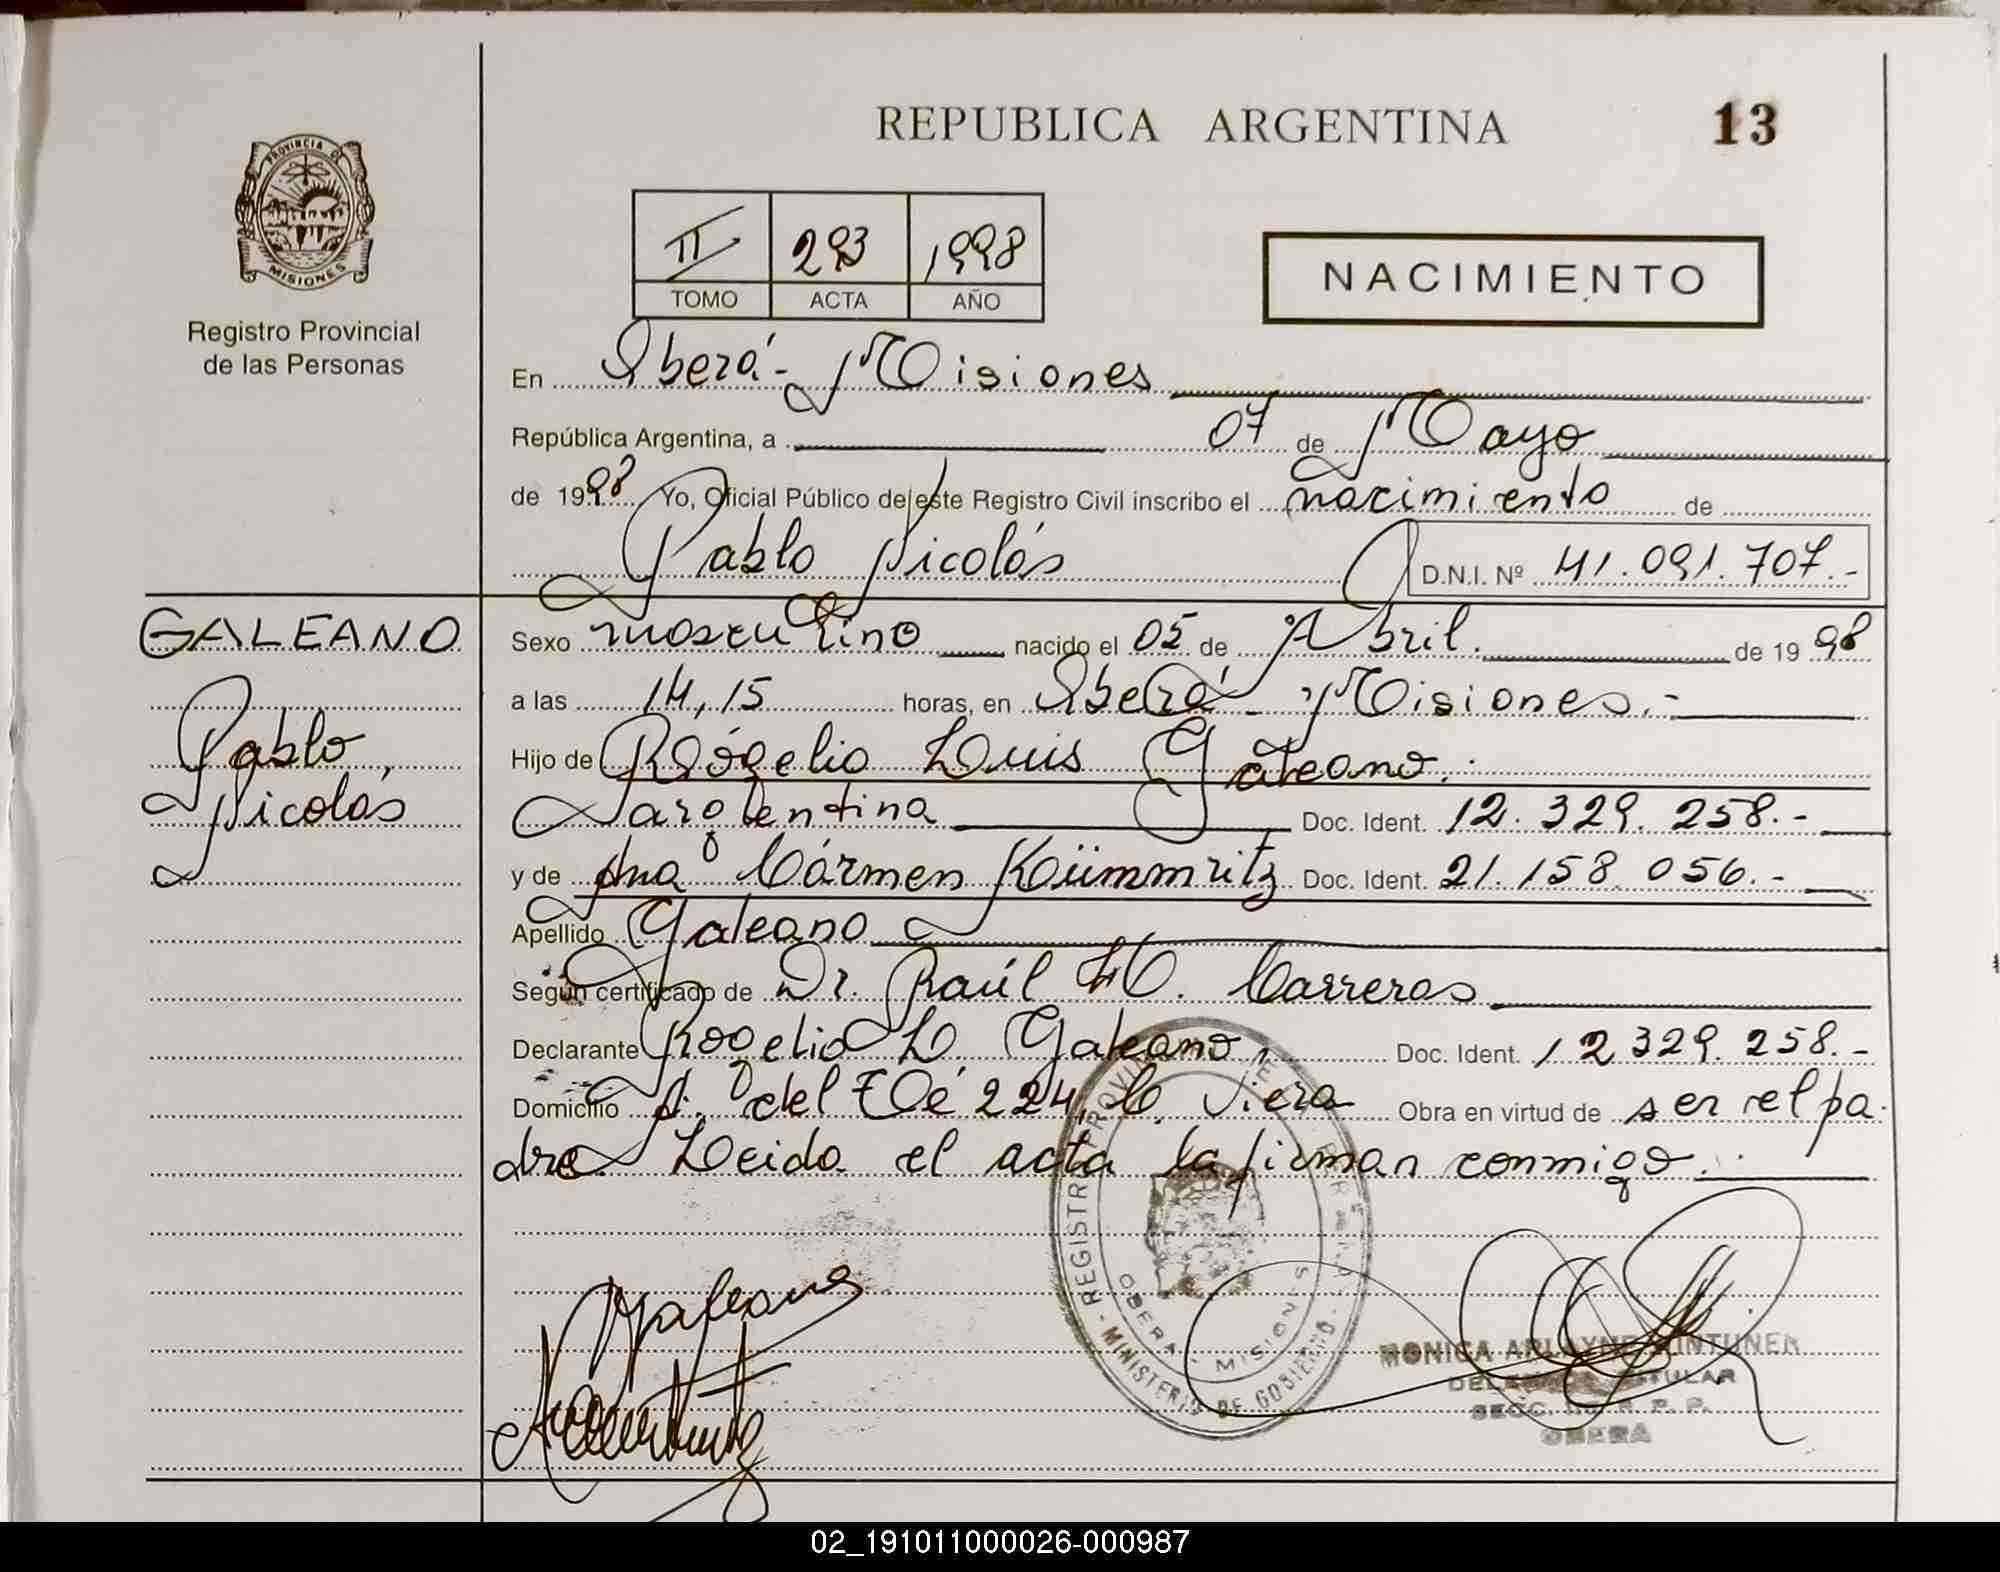 REPUBLICA ARGENTINA
13
PROVINCIA DE
MISIONES
Registro Provincial
de las Personas
II 293 1998
TOMO ACTA AÑO
NACIMIENTO
En Oberá - Misiones
República Argentina, a 07 de Mayo
de 1998 Yo, Oficial Público de este Registro Civil inscribo el nacimiento de
Pablo Nicolás D.N.I. Nº 41.091.707.-
GALEANO
Pablo
Nicolás
Sexo masculino nacido el 05 de Abril. de 19 98
a las 14,15 horas, en Oberá - Misiones.-
Hijo de Rogelio Luis Galeano.
argentina Doc. Ident. 12.329.258.-
y de Ana Cármen Kümmritz Doc. Ident. 21.158.056.-
Apellido Galeano
Según certificado de Dr. Raúl H. Carreras
Declarante Rogelio L. Galeano, Doc. Ident. 12329.258.-
Domicilio del Té 224, C. Viera Obra en virtud de ser el pa-
dre. Leida el acta la firman conmigo.
REGISTRO
MINISTERIO DE GOBIERNO
OBERA MISIONES
MONICA
TITULAR
SECC. R. P. P.
OBERA
02_191011000026-000987